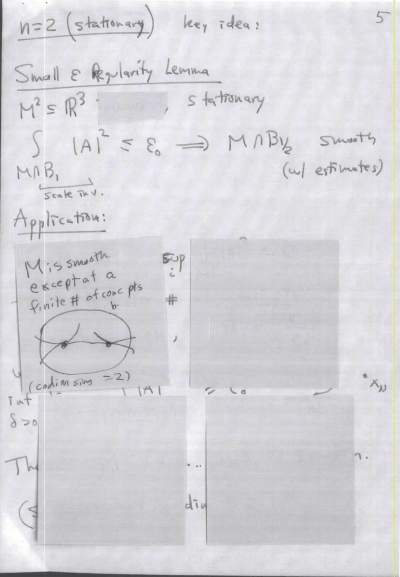 5
n=2 (stationary) key idea:
Small ε Regularity Lemma
M² ⊆ ℝ³ , stationary
∫ |A|² ≤ ε₀ ⟹ M∩B½ smooth
M∩B₁ (w/ estimates)
scale inv.
Application:
M is smooth
except at a
finite # of conc pts
(codim sing = 2)
sup
i
#
int
δ>0
Th ...